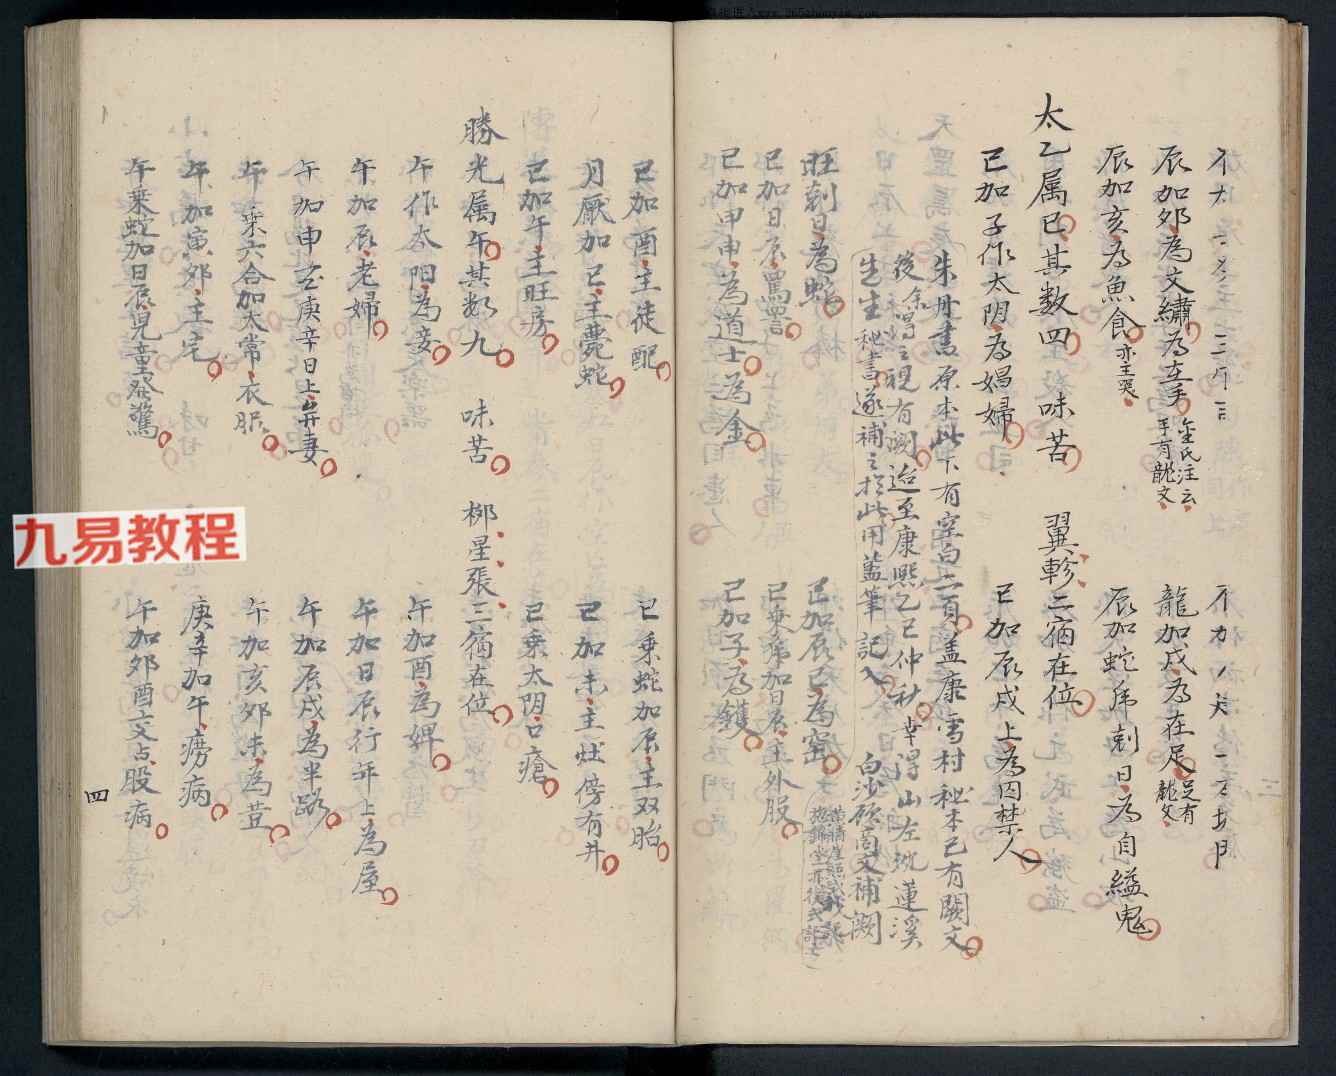 辰加卯為文繡為在手 金氏注云手有龍文 龍加戌為在足 足有龍文
辰加亥為魚食 亦主哭 辰加蛇乕剋日為自縊鬼
太乙属巳其数四 味苦 翼軫二宿在位
巳加子作太阴為娼婦 巳加辰戌上為囚禁人
朱丹書原本此下有空白二頁盖康雪村秘本已有闕文
後余得之視有闕迨至康熙乙巳仲秋幸得山左沈蓮溪
生生秘書遂補之於此用藍筆記入 白沙顾高文補闕
旺剋日為蛇 巳加辰巳為窑
巳加日辰罵詈 巳乗乕加日辰主外服
巳加申申為道士為金 巳加子為鑊
巳加酉主徒配 巳乗蛇加辰主双胎
月厭加巳主斃蛇 巳加未主灶傍有井
巳加午主旺房 巳乗太阴口瘡
勝光属午其数九 味苦 柳星張三宿在位
午作太阳為妾 午加酉為婢
午加辰老婦 午加日辰行年上為屋
午加申至庚辛日上弃妻 午加辰戌為半路
午乗六合加太常衣服 午加亥卯未為荳
午加寅卯主宅 庚辛加午痨病
午乗蛇加日辰児童癸驚 午加卯酉交占股病
四
九易教程